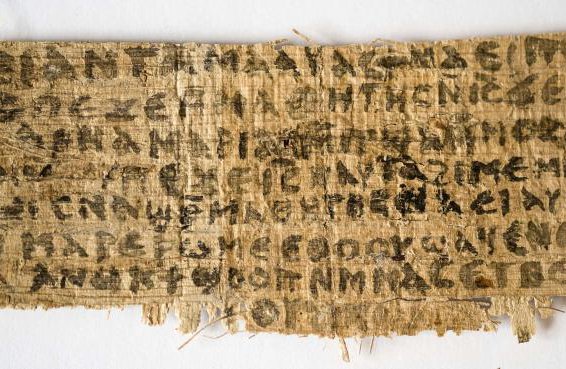 ⲉⲓ ⲁⲛ ⲧⲁⲙⲁⲁⲩ ⲁⲥϯ ⲛⲁⲉⲓ ⲡ
ⲡⲉϫⲉ ⲙⲙⲁⲑⲏⲧⲏⲥ ⲛⲓⲥ ϫⲉ
ⲁⲣⲛⲁ ⲙⲁⲣⲓⲁⲙ
ⲡⲉϫⲉ ⲓⲥ ⲛⲁⲩ ⲧⲁϩⲓⲙⲉ ⲙⲛ
ⲥⲛⲁϣⲣⲙⲁⲑⲏⲧⲏⲥ ⲛⲁⲉⲓ ⲁⲩ
ⲙⲁⲣⲉⲣⲱⲙⲉ ⲉⲑⲟⲟⲩ ϣⲁϥⲉ ⲛⲉ
ⲁⲛⲟⲕ ϯϣⲟⲟⲡ ⲛⲙⲙⲁⲥ ⲉⲧⲃⲉ